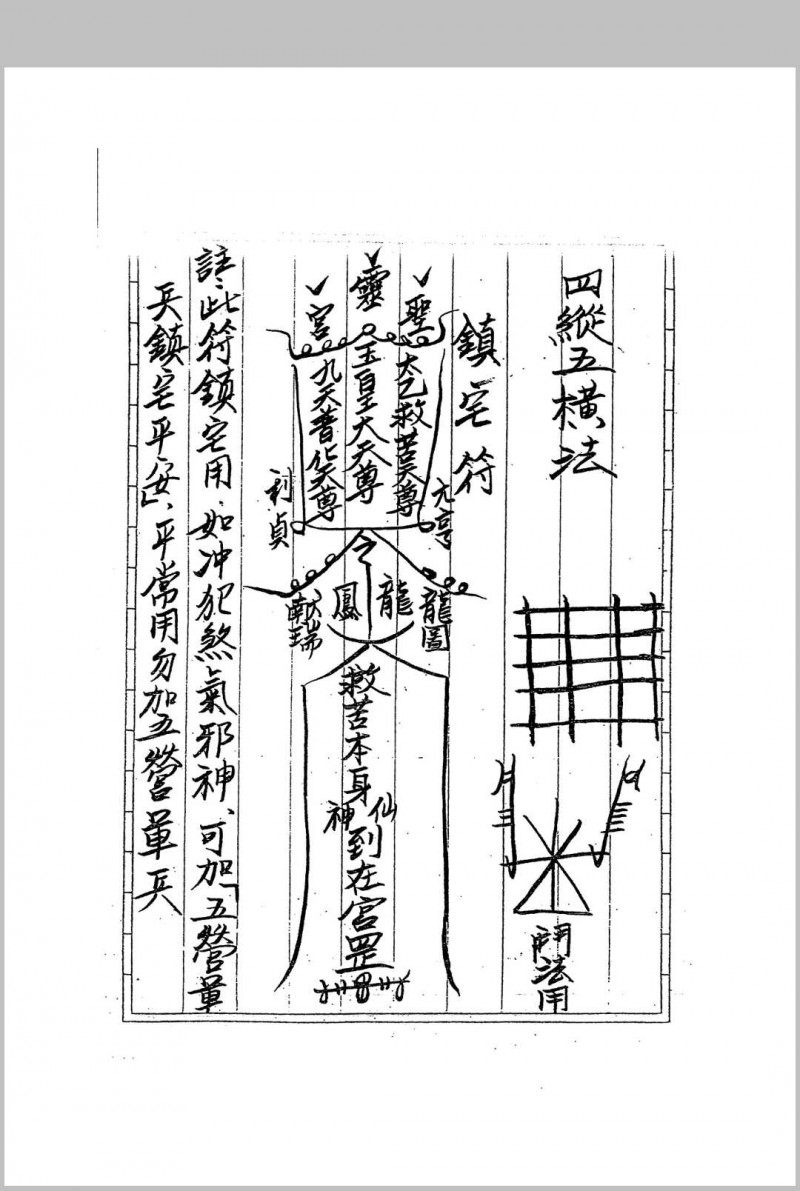 四縱五橫法
鬪法用
鎮宅符
聖
靈
宮
太乙救苦天尊
玉皇大天尊
九天普化天尊
元亨
利貞
令
龍
鳳
龍圖
獻瑞
救苦本身
仙
神
到在宮罡
註:此符鎮宅用,如冲犯煞氣邪神、可加「五營軍
兵鎮宅平安」、平常用勿加五營軍兵